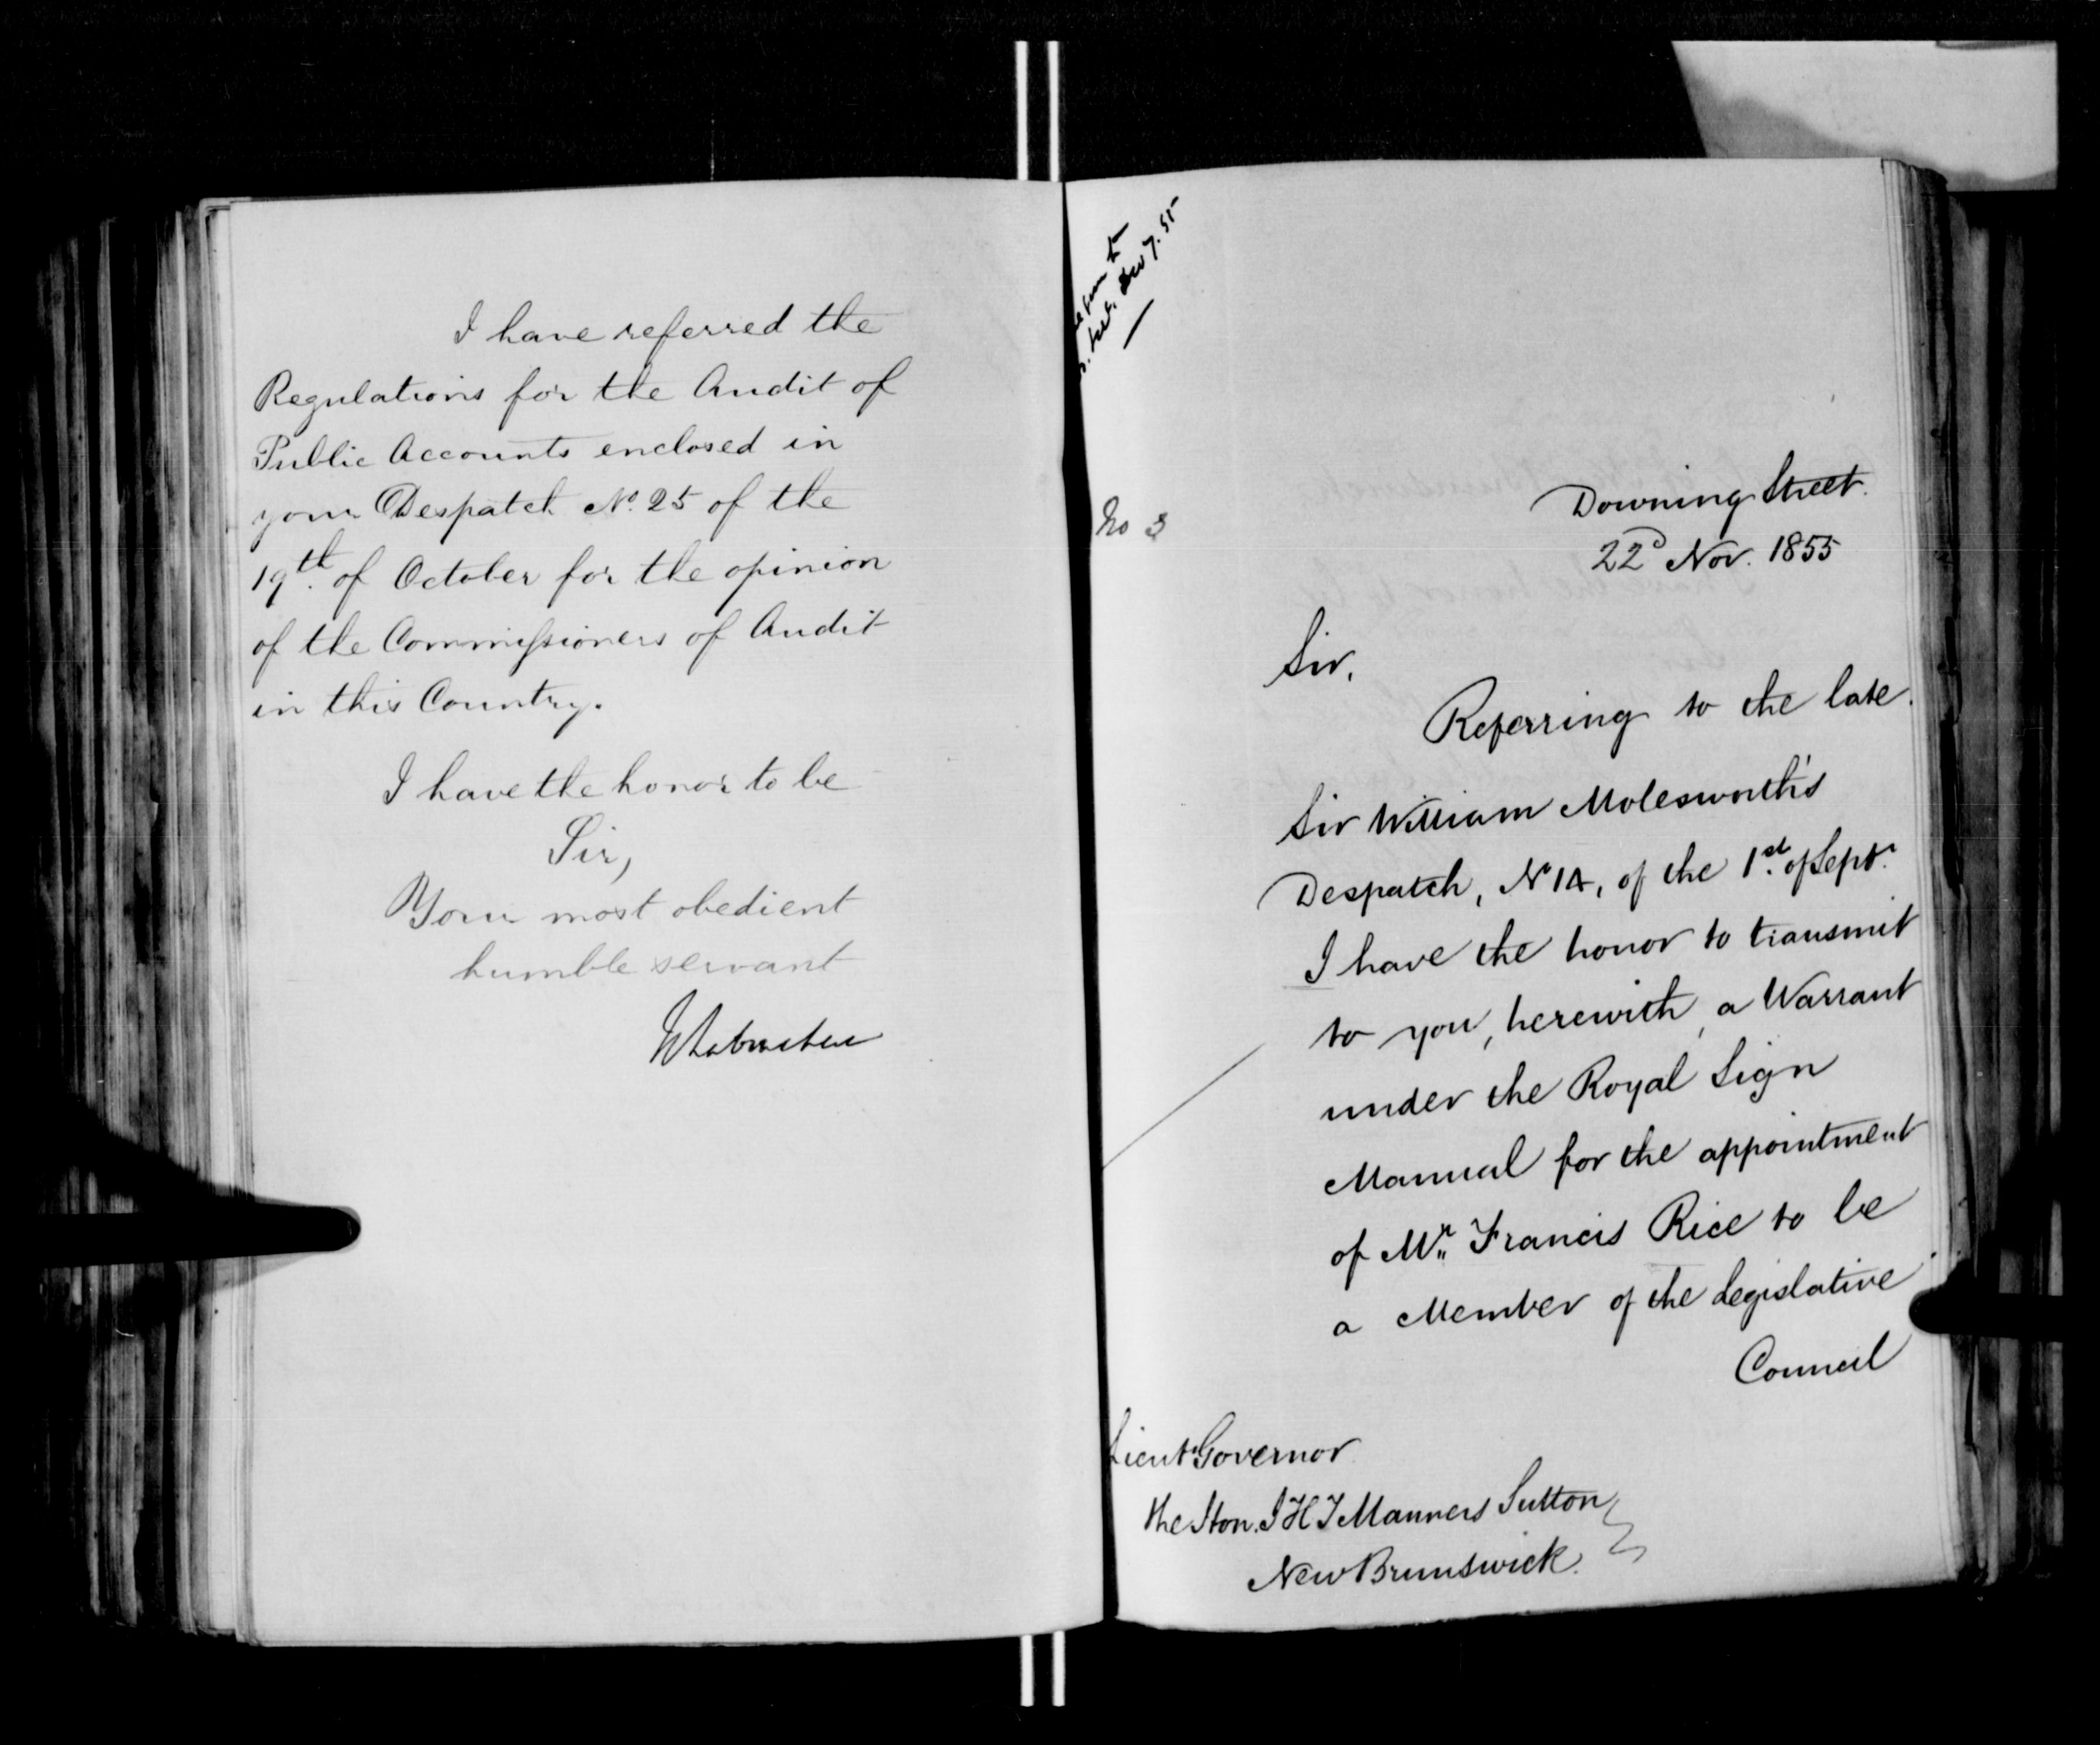 I have referred the
Regulations for the Audit of
Public Accounts enclosed in
your Despatch No. 25 of the
19th. of October for the opinion
of the Commissioners of Audit
in this Country.
I have the honor to be
Sir,
Your most obedient
humble servant
to
Dec 7. 55
No 3
Downing Street.
22d Nov. 1855
Sir,
Referring to the late
Sir William Molesworth's
Despatch, No 14, of the 1st. of Sept.
I have the honor to transmit
to you, herewith, a Warrant
under the Royal Sign
Manual for the appointment
of Mr. Francis Rice to be
a Member of the Legislative
Council
Lieut Governor
the Hon. J H T Manners Sutton
New Brunswick.